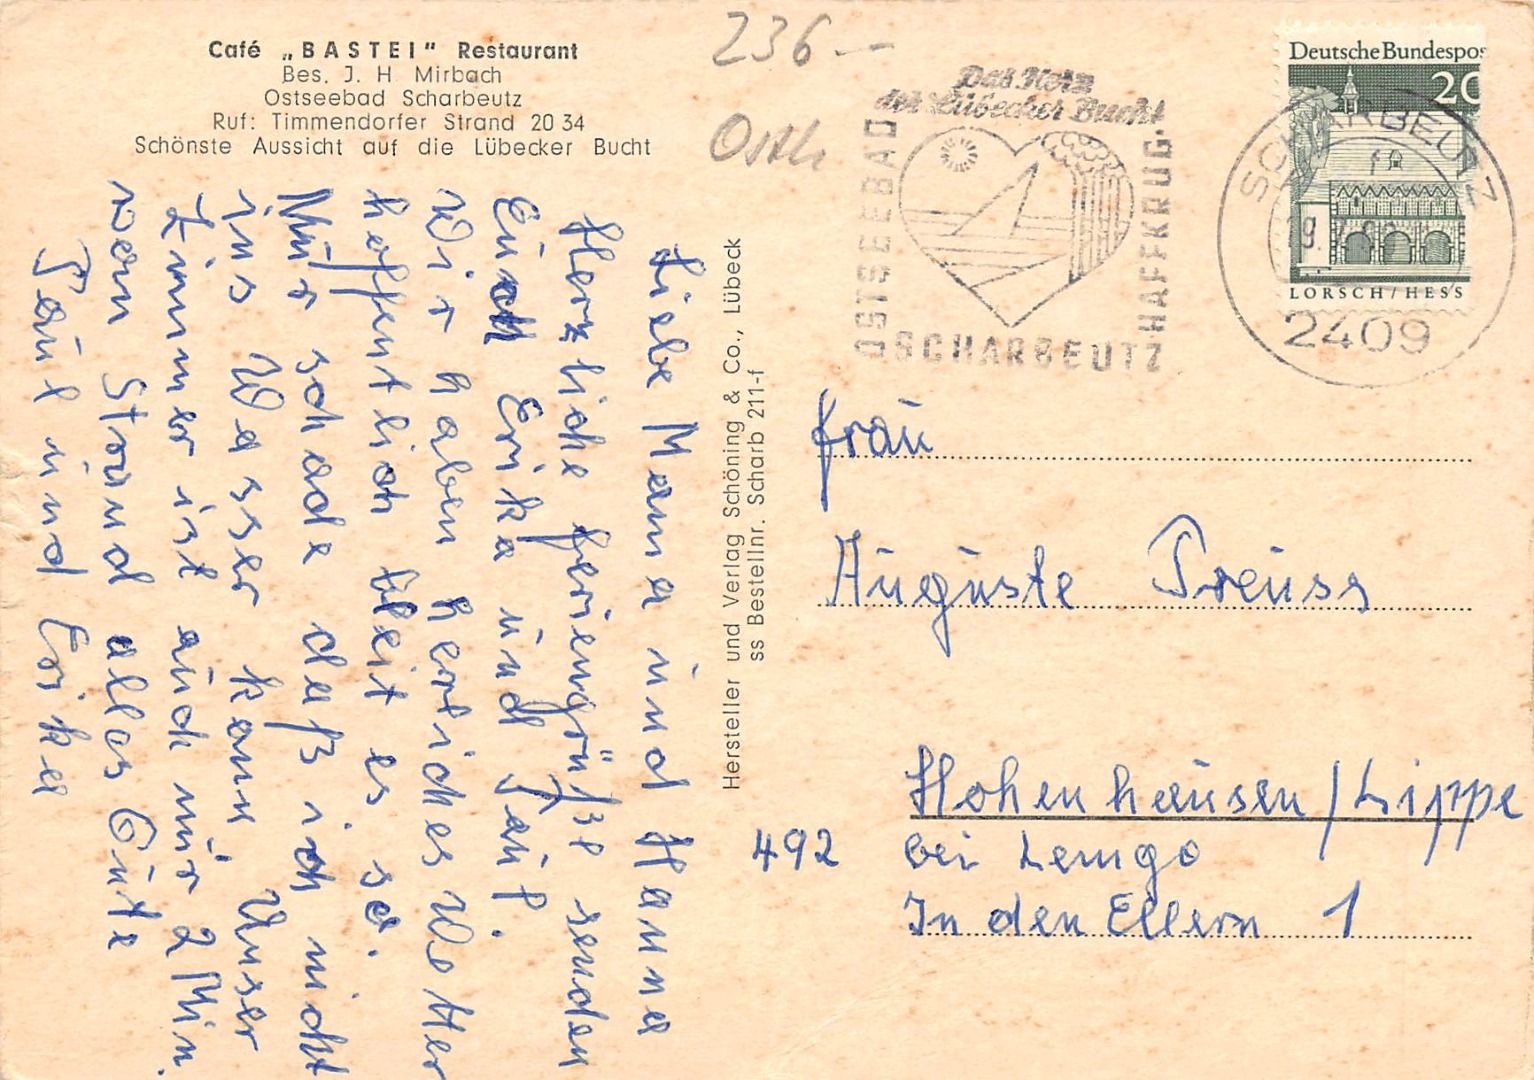 Café „BASTEI" Restaurant
Bes. J. H Mirbach
Ostseebad Scharbeutz
Ruf: Timmendorfer Strand 20 34
Schönste Aussicht auf die Lübecker Bucht
236.—
Osth
Das Herz
der Lübecker Bucht
OSTSEEBAD
SCHARBEUTZ
HAFFKRUG.
Deutsche Bundespos
20
LORSCH/HESS
SCHARBEUTZ
2409
Liebe Mama und Hanna
Herzliche Feriengrüße senden
Euch Erika und Paul.
Wir haben herliches Wetter
hoffentlich bleit es so.
Nur schade daß ich nicht
ins Wasser kann Unser
Zimmer ist auch nur 2 Min.
vom Strand alles Gute
Paul und Erika
Hersteller und Verlag Schöning & Co., Lübeck
ss Bestellnr. Scharb 211-f
Frau
Auguste Preuss
492 Hohenhausen/Lippe
bei Lemgo
In den Ellern 1